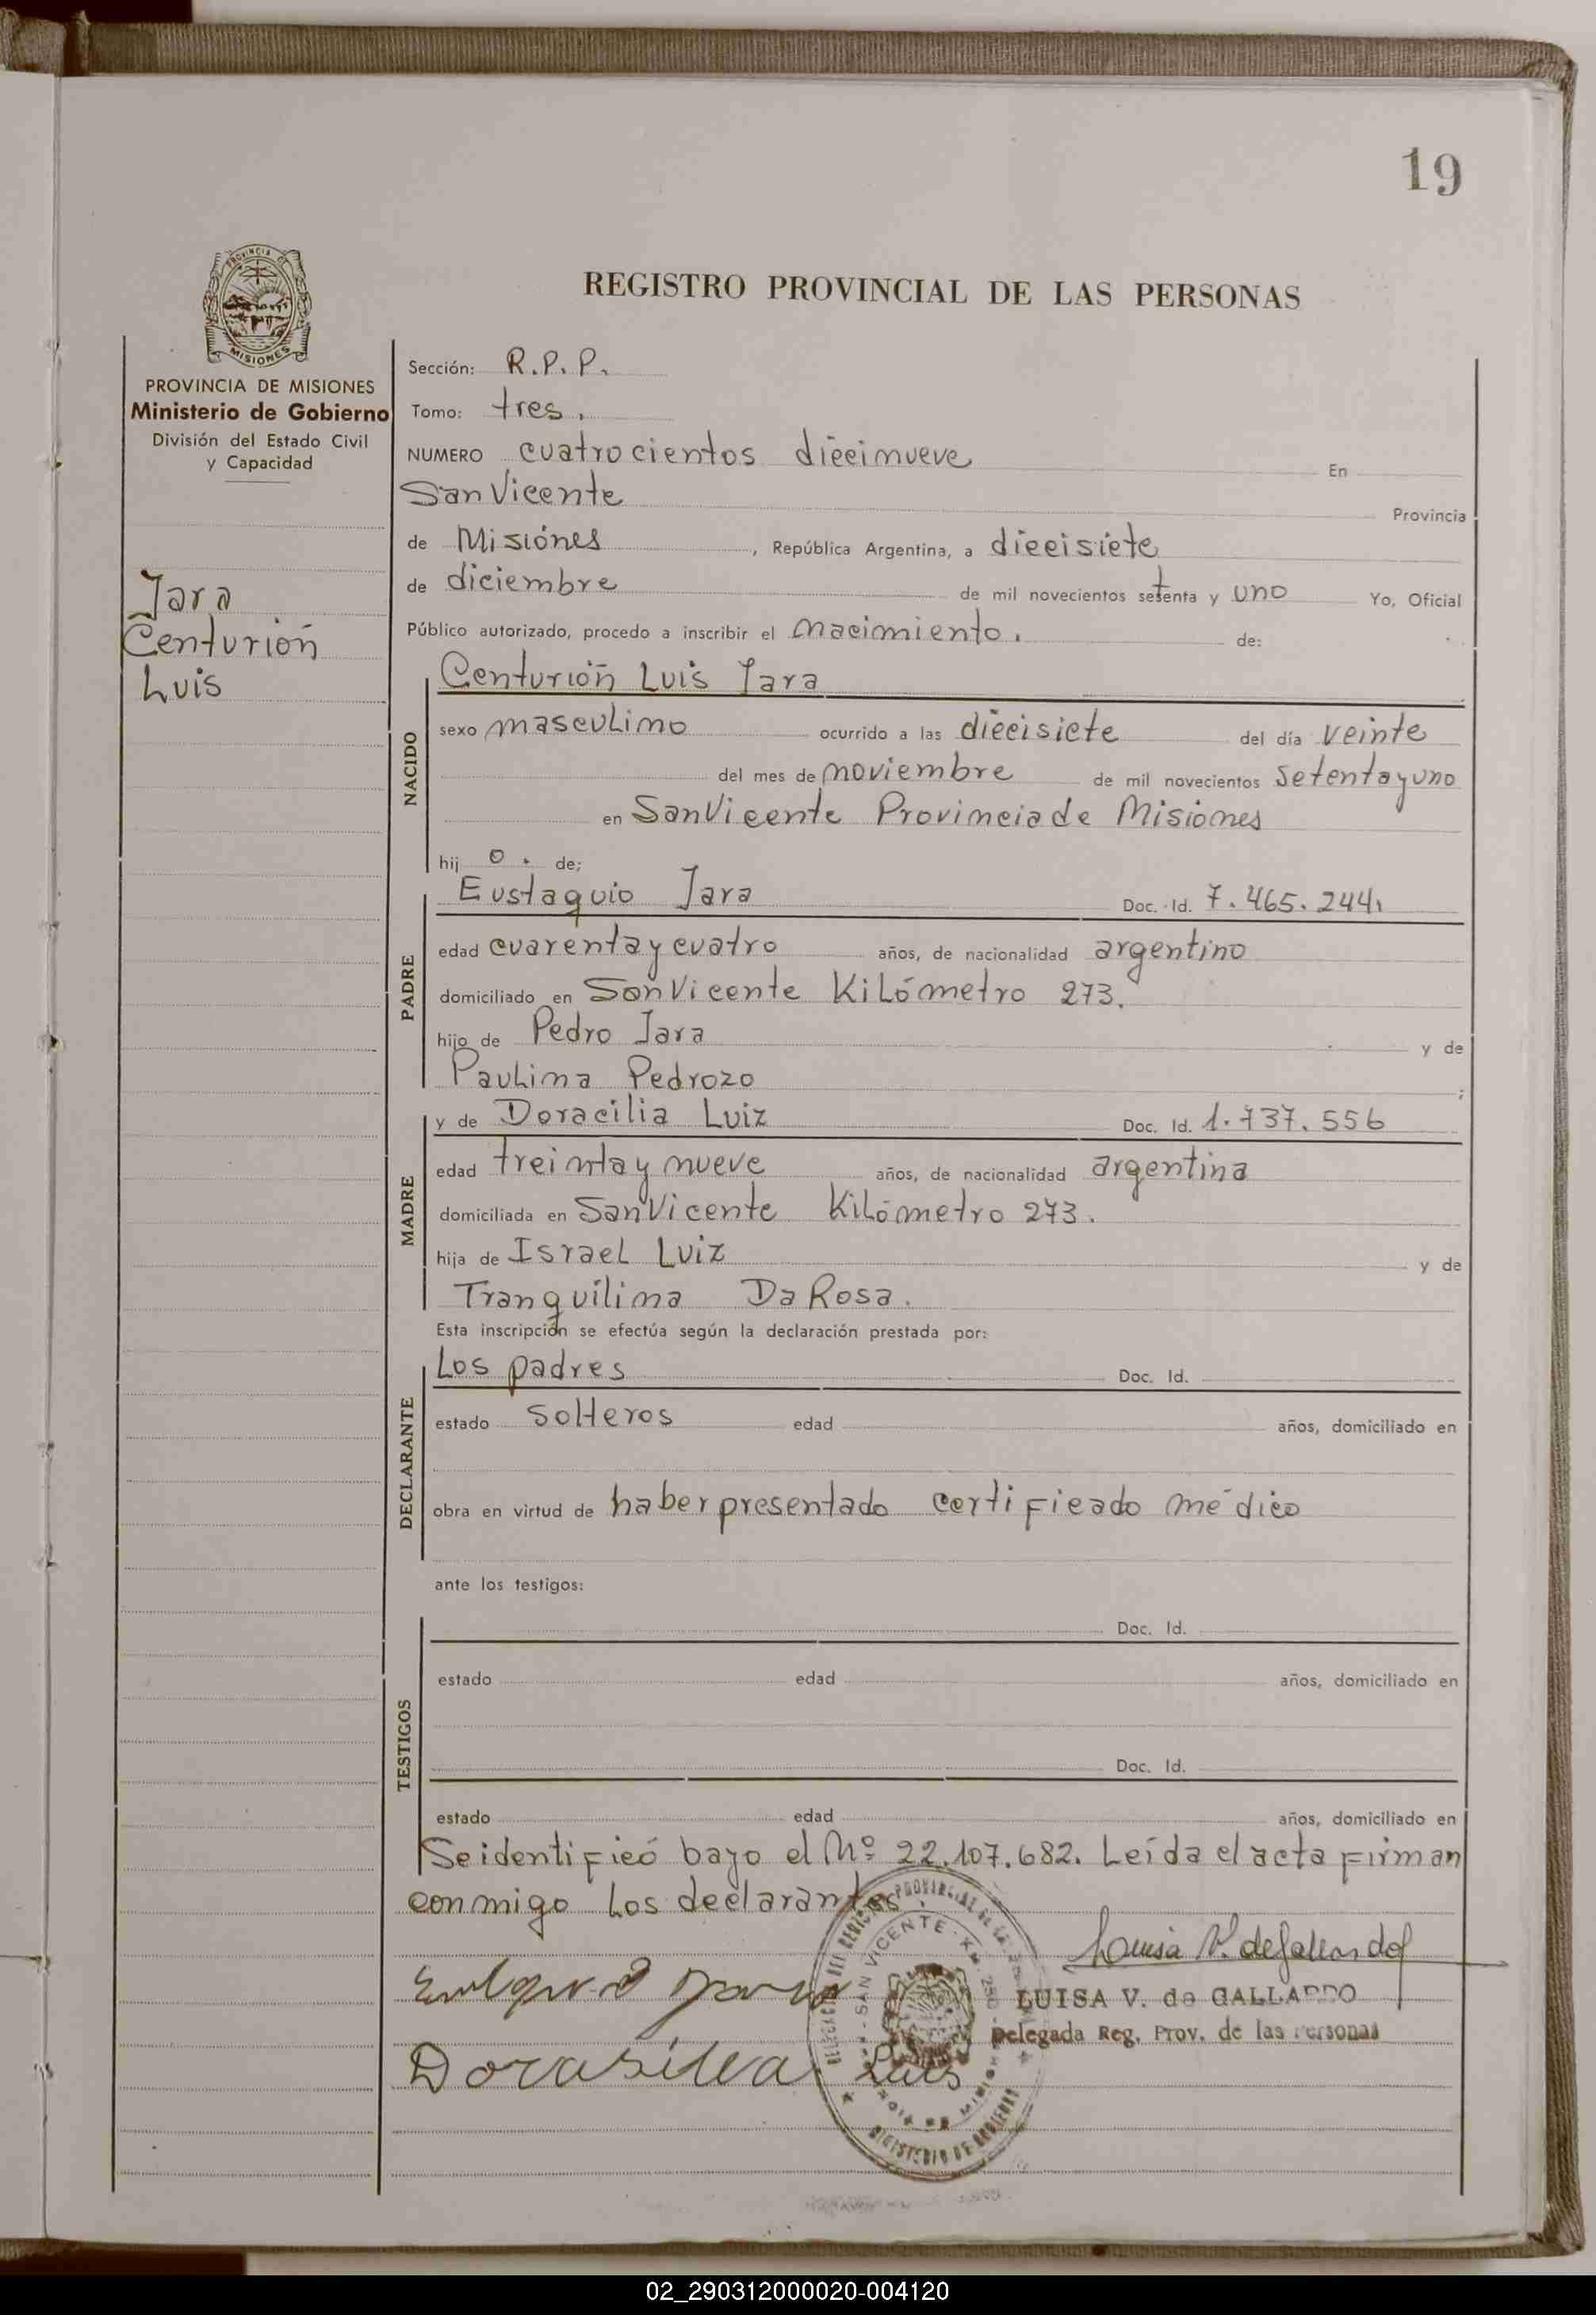 19
REGISTRO PROVINCIAL DE LAS PERSONAS
PROVINCIA DE MISIONES
Ministerio de Gobierno
División del Estado Civil
y Capacidad
Jara
Centurión
Luis
Sección: R.P.P.
Tomo: tres.
NUMERO cuatrocientos diecinueve En
San Vicente Provincia
de Misiones, República Argentina, a diecisiete
de diciembre de mil novecientos setenta y uno Yo, Oficial
Público autorizado, procedo a inscribir el nacimiento. de:
Centurión Luis Jara
NACIDO
sexo masculino ocurrido a las diecisiete del día veinte
del mes de noviembre de mil novecientos setenta y uno
en San Vicente Provincia de Misiones
hijo. de:
PADRE
Eustaquio Jara Doc. Id. 7.465.244.
edad cuarenta y cuatro años, de nacionalidad argentino
domiciliado en San Vicente Kilómetro 273.
hijo de Pedro Jara y de
Paulina Pedrozo ;
MADRE
y de Doracilia Luiz Doc. Id. 1.737.556
edad treinta y nueve años, de nacionalidad argentina
domiciliada en San Vicente Kilómetro 273.
hija de Israel Luiz y de
Tranquilina Da Rosa.
Esta inscripción se efectúa según la declaración prestada por:
DECLARANTE
Los padres Doc. Id.
estado solteros edad años, domiciliado en
obra en virtud de haber presentado certificado médico
ante los testigos:
TESTIGOS
Doc. Id.
estado edad años, domiciliado en
Doc. Id.
estado edad años, domiciliado en
Se identificó bajo el Nº 22.107.682. Leída el acta firman
conmigo los declarantes
Luisa V. de Gallardo
LUISA V. de GALLARDO
Delegada Reg. Prov. de las Personas
Dorasilia Luis
SAN VICENTE
MINISTERIO DE GOBIERNO
02_290312000020-004120